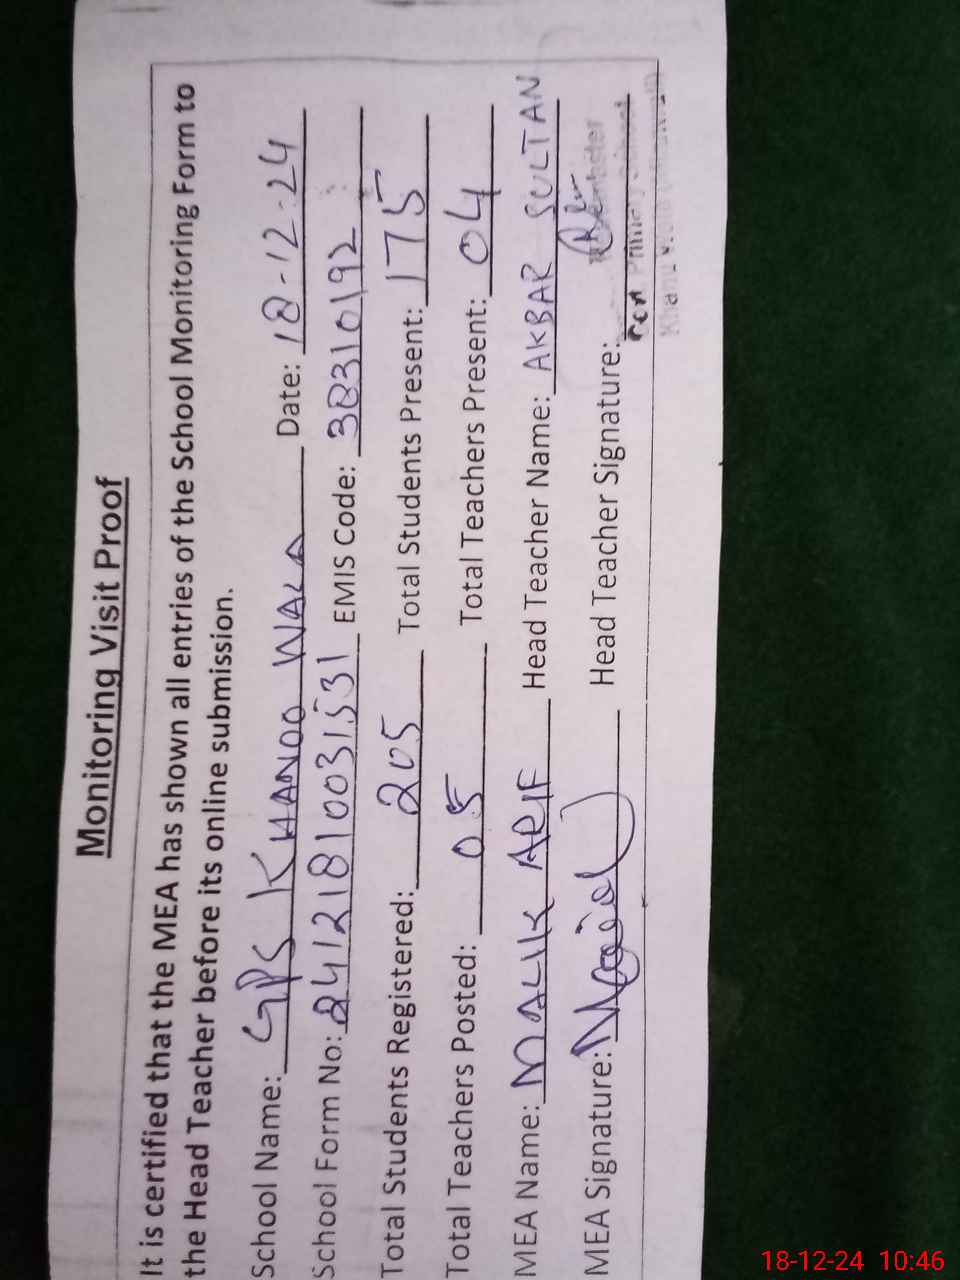 Monitoring Visit Proof
It is certified that the MEA has shown all entries of the School Monitoring Form to
the Head Teacher before its online submission.
School Name: GPS KHANOO WALA Date: 18-12-24
School Form No: 24121810031531 EMIS Code: 38310192
Total Students Registered: 205 Total Students Present: 175
Total Teachers Posted: 05 Total Teachers Present: 04
MEA Name: MALIK ARIF Head Teacher Name: AKBAR SULTAN
MEA Signature: Head Teacher Signature:
Primary School
18-12-24 10:46